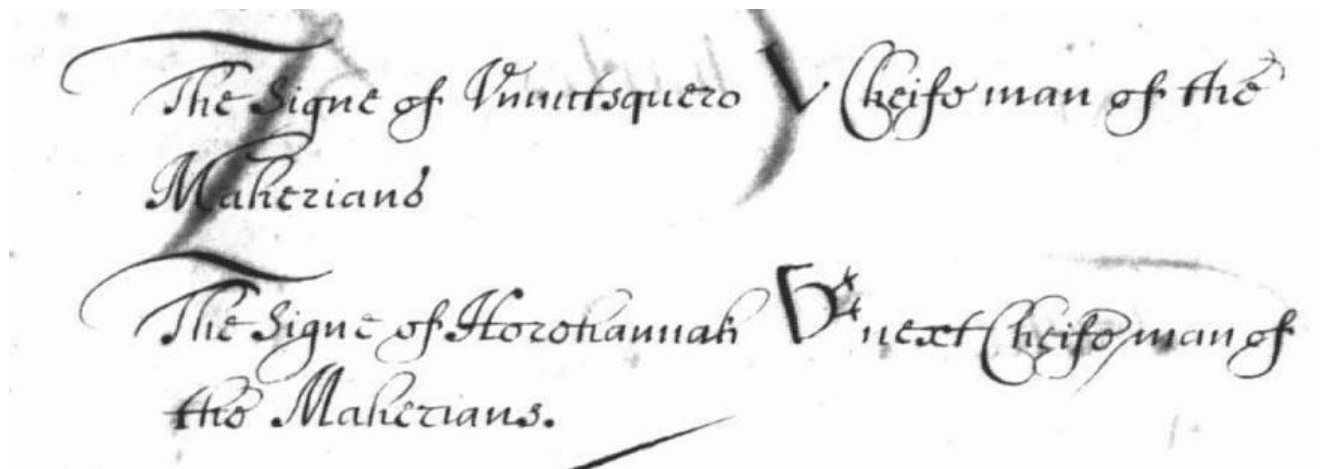 The Signe of Vnuntsquero V Cheife man of the
Maherians
The Signe of Horohannah H next Cheife man of
the Maherians.